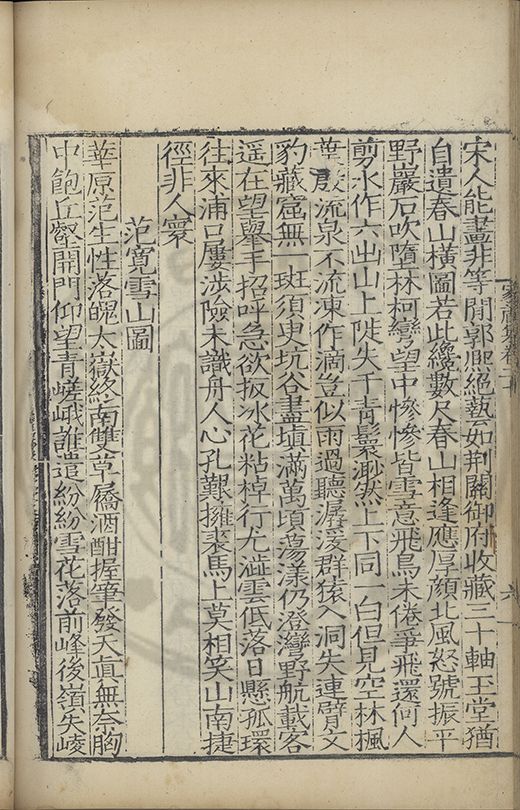 宋人能畫非等閒郭熙絕藝如荆關御府收藏三十軸玉堂猶
自遺春山橫圖若此纔數尺春山相逢應厚顔北風怒號振平
野巖石吹墮林柯彎望中慘慘皆雪意飛鳥未倦爭飛還何人
剪水作六出山上陡失千青鬟渺然上下同一白但見空林楓
葉殷流泉不流凍作滴豈似雨過聽潺湲群猿入洞失連臂文
豹藏窟無一斑須臾坑谷盡塡滿萬頃蕩漾仍澄灣野航載客
遥在望舉手招呼急欲扳冰花粘棹行尤澁雲低落日懸孤環
往來浦口屢涉險未識舟人心孔艱擁裘馬上莫相笑山南捷
徑非人寰
范寛雪山圖
華原范生性落魄太嶽終南雙草屩酒酣握筆發天眞無奈胸
中飽丘壑開門仰望青嵯峨誰遣紛紛雪花落前峰後嶺失崚